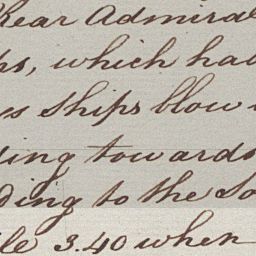 Rear Admiral
ps, which ha
s ships blow
ing towards
ding to the So
le 3.40 when